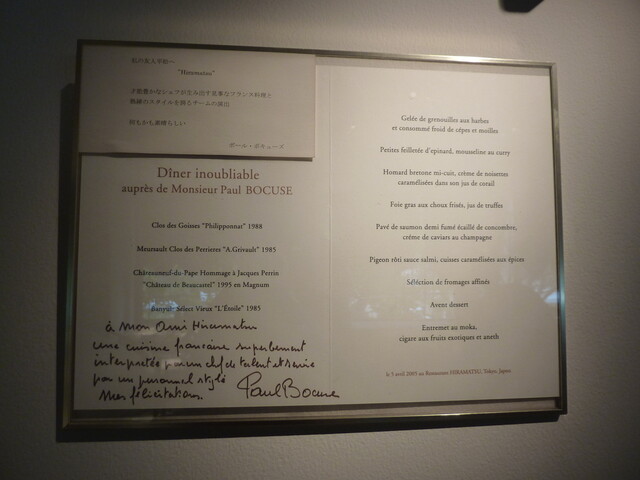 私の友人平松へ
"Hiramatsu"
才能豊かなシェフが生み出す見事なフランス料理と
独融のスタイルを誇るチームの演出
何もかも素晴らしい
ポール・ボキューズ
Dîner inoubliable
auprès de Monsieur Paul BOCUSE
Clos des Goisses "Philipponnat" 1988
Meursault Clos des Perrieres "A.Grivault" 1985
Châteauneuf-du-Pape Hommage à Jacques Perrin
"Château de Beaucastel" 1995 en Magnum
Banyuls Select Vieux "L'Étoile" 1985
à mon Ami Hiramatsu
une cuisine française superbement
interpretée par un chef de talent et servie
par un personnel stylé
Mes félicitations.
Paul Bocuse
Gelée de grenouilles aux herbes
et consommé froid de cèpes et morilles
Petites feilletée d'epinard, mousseline au curry
Homard bretone mi-cuit, crème de noisettes
caramélisées dans son jus de corail
Foie gras aux choux frisés, jus de truffes
Pavé de saumon demi fumé écaillé de concombre,
crème de caviars au champagne
Pigeon rôti sauce salmi, cuisses caramélisées aux épices
Séléction de fromages affinés
Avent dessert
Entremet au moka,
cigare aux fruits exotiques et aneth
le 5 avril 2005 au Restaurant HIRAMATSU, Tokyo, Japon